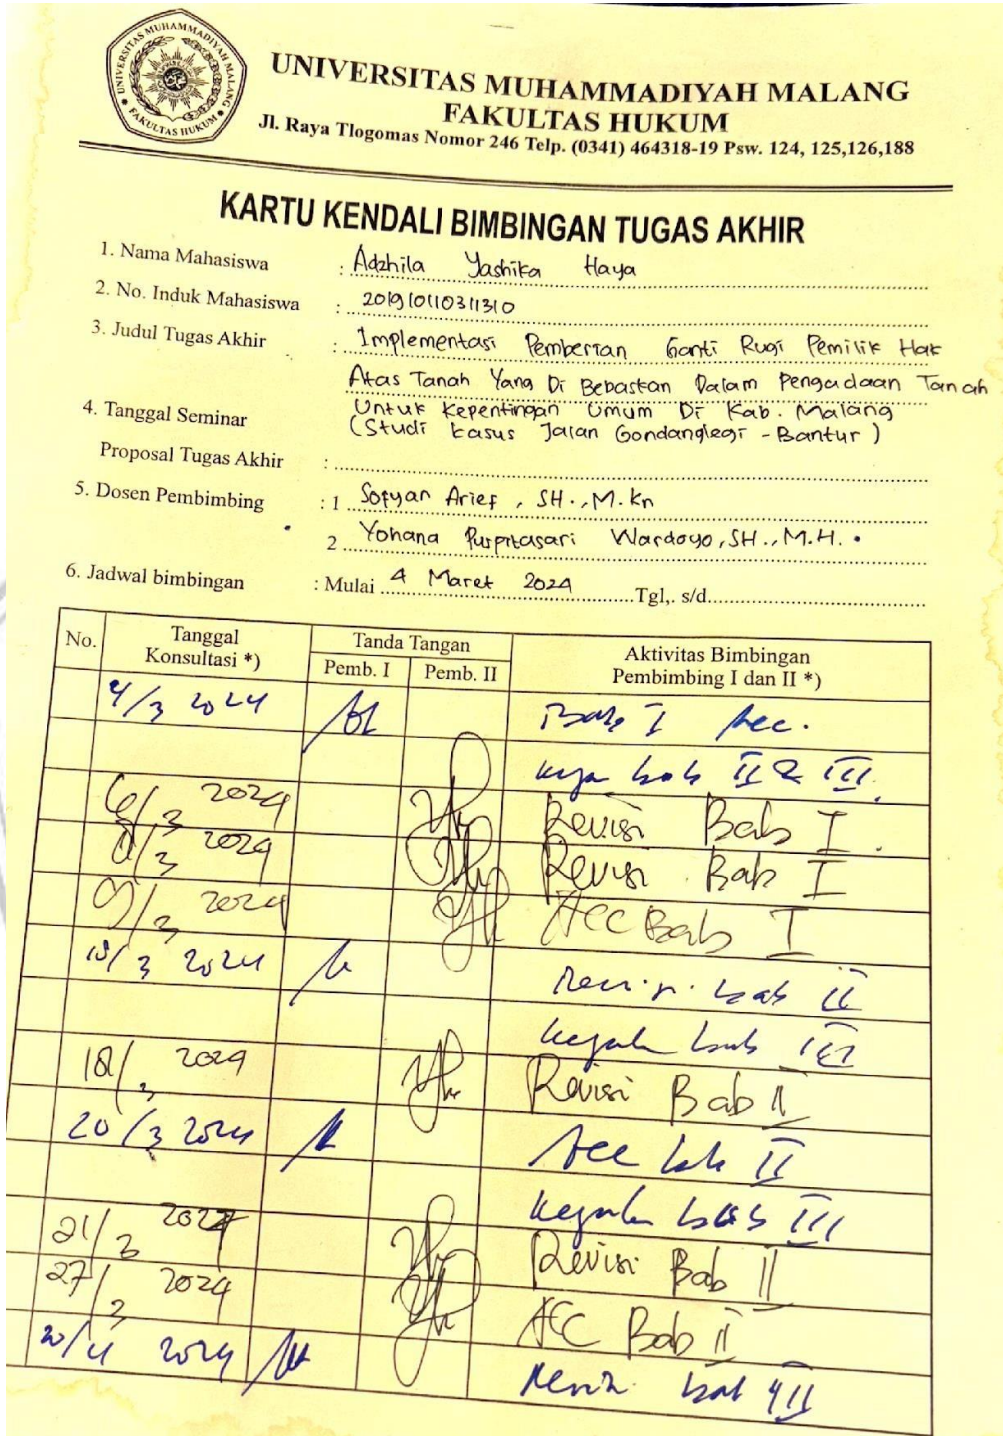 UNIVERSITAS MUHAMMADIYAH MALANG
FAKULTAS HUKUM
UNIVERSITAS MUHAMMADIYAH MALANG
FAKULTAS HUKUM
Jl. Raya Tlogomas Nomor 246 Telp. (0341) 464318-19 Psw. 124, 125,126,188
KARTU KENDALI BIMBINGAN TUGAS AKHIR
1. Nama Mahasiswa : Adzhila Yashika Haya
2. No. Induk Mahasiswa : 201910110311310
3. Judul Tugas Akhir : Implementasi Pemberian Ganti Rugi Pemilik Hak
Atas Tanah Yang Di Bebaskan Dalam Pengadaan Tanah
Untuk Kepentingan Umum Di Kab. Malang
(Studi kasus Jalan Gondanglegi - Bantur)
4. Tanggal Seminar
Proposal Tugas Akhir :
5. Dosen Pembimbing : 1 Sofyan Arief, SH., M.Kn
2 Yohana Puspitasari Wardoyo, SH., M.H.
6. Jadwal bimbingan : Mulai 4 Maret 2024 Tgl,. s/d
No. Tanggal Konsultasi *) Tanda Tangan Aktivitas Bimbingan
Pemb. I Pemb. II Pembimbing I dan II *)
4/3 2024 Bab I Acc.
bab II & III.
6/3 2024 Revisi Bab I.
8/3 2024 Revisi Bab I
9/3 2024 ACC Bab I
18/3 2024 Revisi bab II
bab III
18/3 2024 Revisi Bab II
20/3 2024 Acc bab II
bab III
21/3 2024 Revisi Bab II
27/3 2024 ACC Bab II
20/4 2024 Revisi bab III